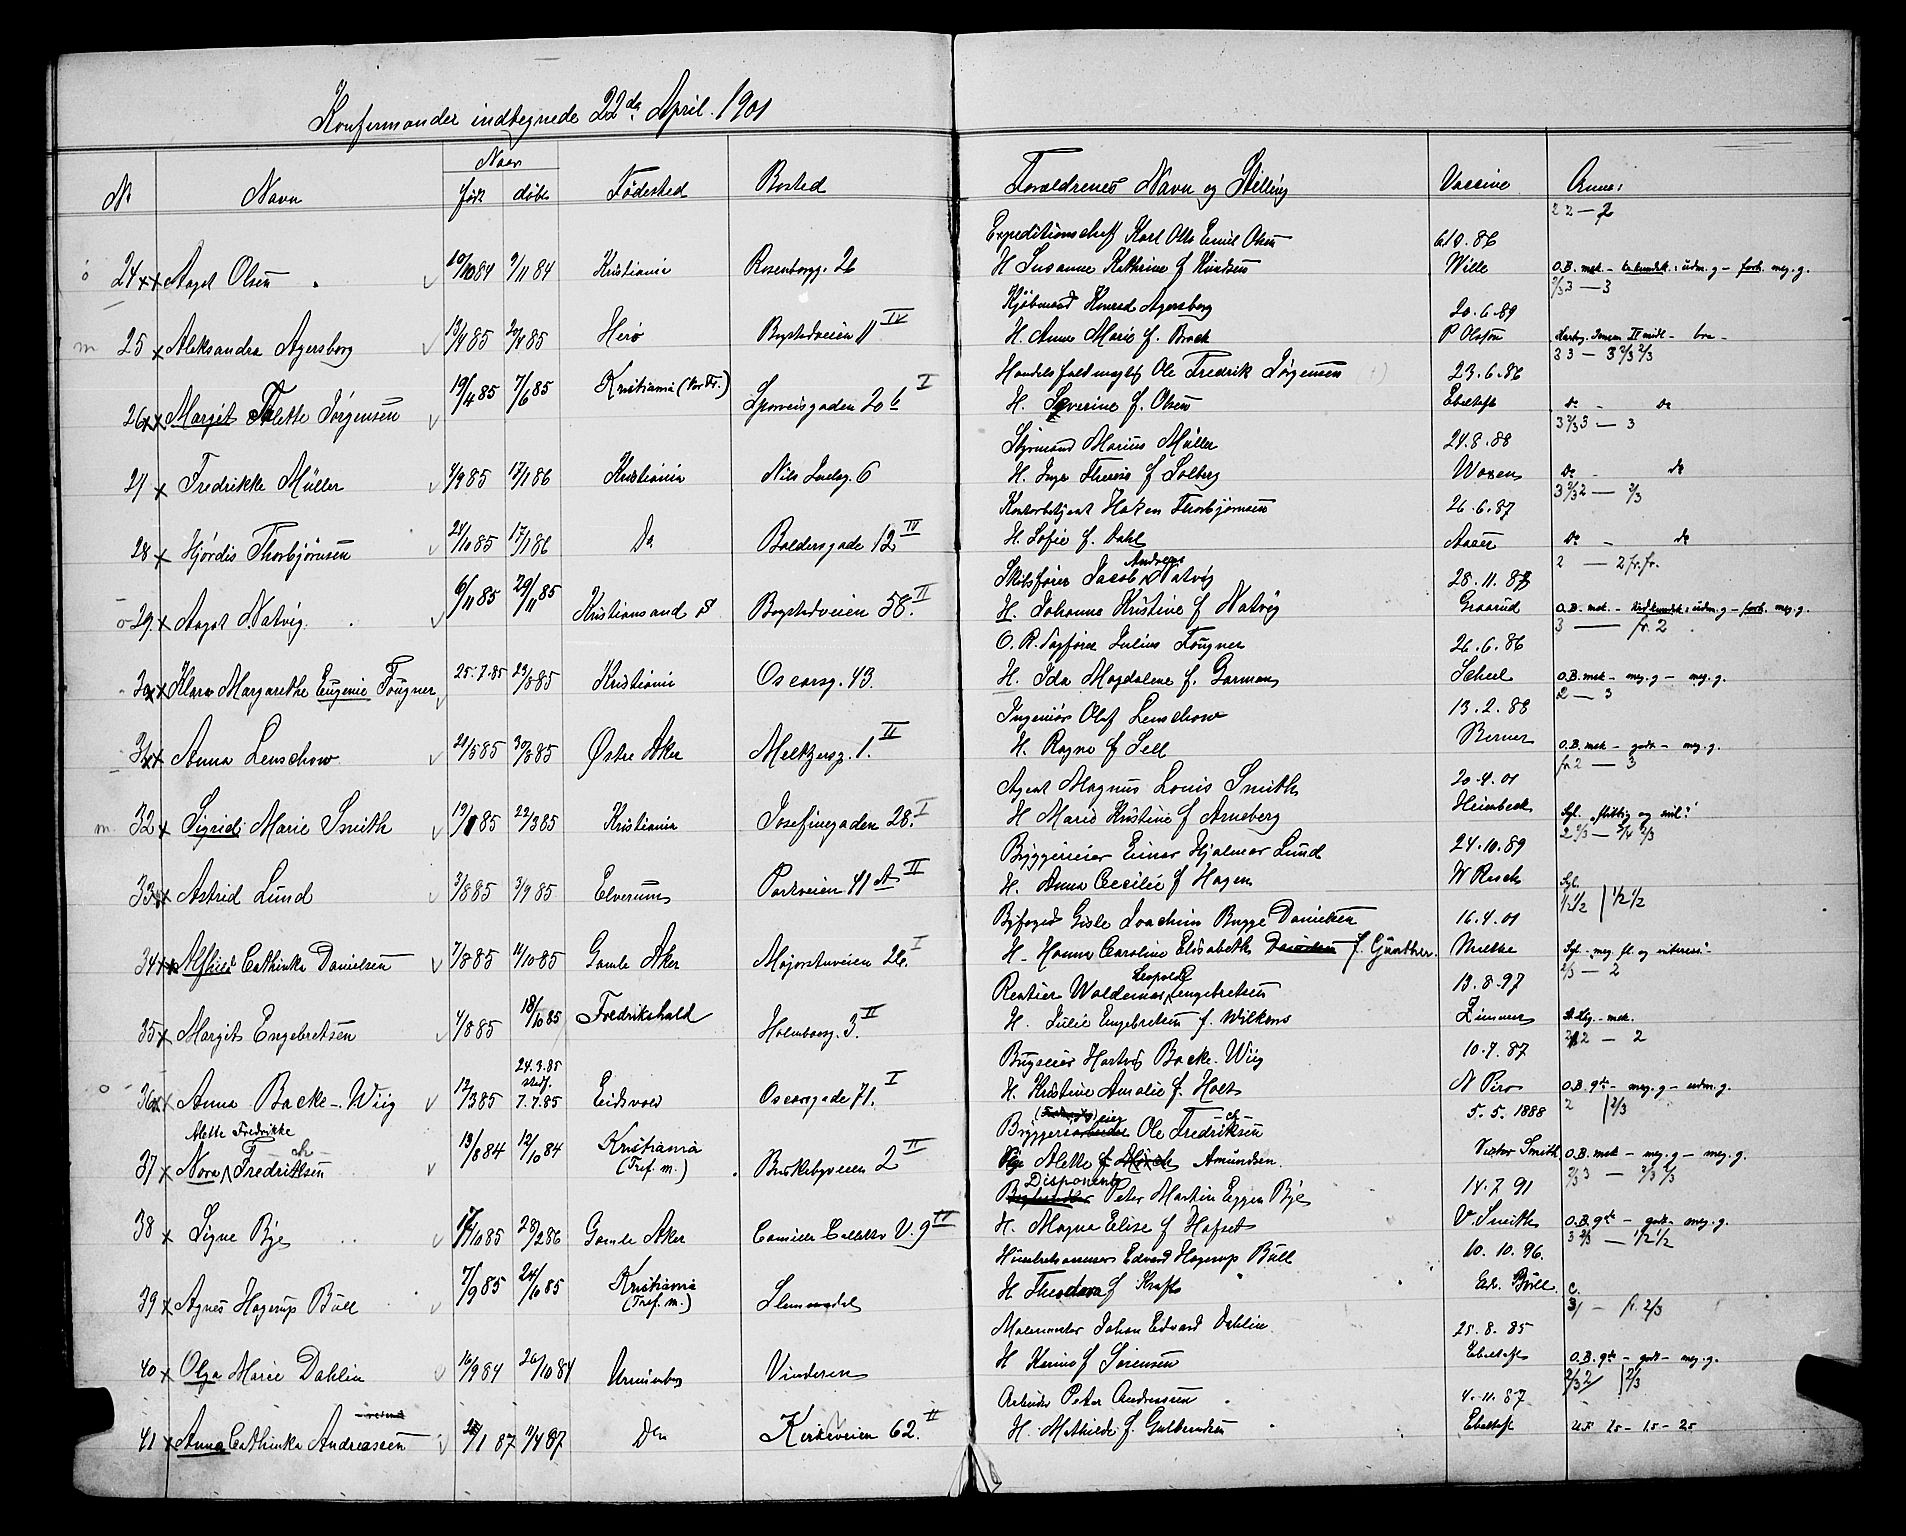 Konfermander indtegnede 22de April. 1901
Nr Navn Naar født døbt Fødested Bosted Forældrenes Navn og Stilling Vaccine Anm:
22 — 2
Expeditionschef Karl Otto Emil Olsen 6.10.86
24 Aagot Olsen 10/10 84 9/11 84 Kristiania Rosenborgg. 26 H Susanne Kathrine f Knudsen Wille O.B. mek - udm. g - forb. meg. g.
2/3 3 — 3
Kjøbmand Konrad Agersborg 20.6.89
25 Aleksandra Agersborg 13/4 85 20/4 85 Herø Bogstadveien 11 IV H. Anne Marie f. Brock P Olsson
33 — 3 2/3 2/3
Handelsfuldmægt Ole Fredrik Jørgensen 23.6.86
26 Margit Valette Jørgensen 19/4 85 7/6 85 Kristiania (Vor Fr.) Sporveisgaden 20 b I H. Severine f. Olsen Ebeltoft Do - Do
3 2/3 3 — 3
Styrmand Marius Müller 24.8.88
27 Fredrikke Müller 4/9 85 17/1 86 Kristiania Nils Juelsg. 6 H. Inga Therese f Solberg Woxen Do - Do
3 2/3 2 — 2/3
Kontorbetjent Hakon Thorbjørnsen 26.6.87
28 Hjørdis Thorbjørnsen 24/10 85 17/1 86 Do Baldersgade 12 IV H. Sofie f. Dahl Aaser Do - Do
2 — 2 fr. fr.
Skibsfører Jacob Andreas Natvig 28.11.87
29 Aagot Natvig 6/11 85 29/11 85 Kristiansand S Bogstadveien 58. II H. Johanne Kristine f Natvig Graarud O.B. mek. - udm. g - forb. meg. g.
3 — fr. 2
O. R. Sagfører Julius Fougner 26.6.86
30 Klara Margarethe Eugenie Fougner 25.7.85 23/8 85 Kristiania Oscarsg. 43. H. Ida Magdalene f. Garmann Scheel O.B. mek - meg. g - meg. g.
2 — 3
Ingeniør Olaf Lenschow 13.2.88
31 Anna Lenschow 21/5 85 30/8 85 Østre Aker Meltzersg. 1. II H. Ragna f Sell Berner O.B. mek - godt - meg. g.
fr 2 — 3
Agent Magnus Louis Smith 20.4.01
32 Sigrid Marie Smith 19/1 85 22/3 85 Kristiania Josefinegaden 28. I H Marie Kristine f Arneberg Heimbeck Syl. flittig og snil!
2 2/3 — 3/4 2/3
Bryggerieier Einar Hjalmar Lund 24.10.89
33 Astrid Lund 3/8 85 3/9 85 Elverum Parkveien 41 A II H. Anna Cecilie f Hagen W Resch Syl.
1/2 1/2 | 1/2 1/2
Byfoged Gisle Joachim Bugge Danielsen 16.4.01
34 Cathinka Danielsen 7/8 85 4/10 85 Gamle Aker Majorstuveien 26. I H. Hanna Caroline Elisabeth f. Gunther. Miethe Syl. meg fl. og interess.
2/3 — 2
Rentier Waldemar Leopold Engebretsen 13.8.97
35 Margit Engebretsen 4/8 85 18/10 85 Fredrikshald Holmborg. 3. II H. Julie Engebretsen f. Wilkens Zimmer
2 — 2
Brugseier Hartvig Backe-Wiig 10.7.87
36 Anna Backe-Wiig 12/3 85 24.3.85 stedf. 7.7.85 Eidsvold Oscarsgade 71. I H. Kristine Amalie f. Holst N Piro O.B. gdt - meg. g - udm. g.
2 | 2/3
Bryggerieier Ole Fredriksen 5.5.1888
37 Nora Alette Fredrikke Fredriksen 13/8 84 12/10 84 Kristiania (Tref. m.) Briskebyveien 2 II Alette Amundsen. Victor Smith O.B. mek - meg. g - meg. g.
2/3 3 — 2/3 1/3
Disponent Peter Martin Eggen Bye 14.7.91
38 Signe Bye 17/10 85 28/2 86 Gamle Aker Camilla Colletts V. 9 IV H. Magna Elise f Hafset V. Smith O.B. gdt - godt - meg. g.
3 2/3 — 1/2 1/2
Edvard Hagerup Bull 10.10.96.
39 Agnes Hagerup Bull 7/9 85 24/10 85 Kristiania (Tref. m.) Slemmedal H Theodora f Kraft Edv. Bull. C.
31 — fr. 2/3
Malermester Johan Edvard Dahlin 25.8.85
40 Olga Marie Dahlin 16/9 84 26/10 84 Uranienborg Vinderen H Karine f Sørensen Ebeltoft O.B. gdt - godt - meg. g.
2/3 2 | 2/3
Arbeider Peter Andreassen 4.11.87
41 Anna Cathinka Andreassen 28/1 87 11/4 87 Do Kirkeveien 62. II H. Mathilde f Gulbrandsen Ebeltoft U.F. 25 - 15 - 25